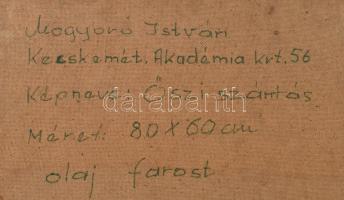 Mogyoró István
Kecskemét. Akadémia krt. 56
Képneve: Őszi szántás
Méret: 80 X 60 cm
olaj farost
darabanth